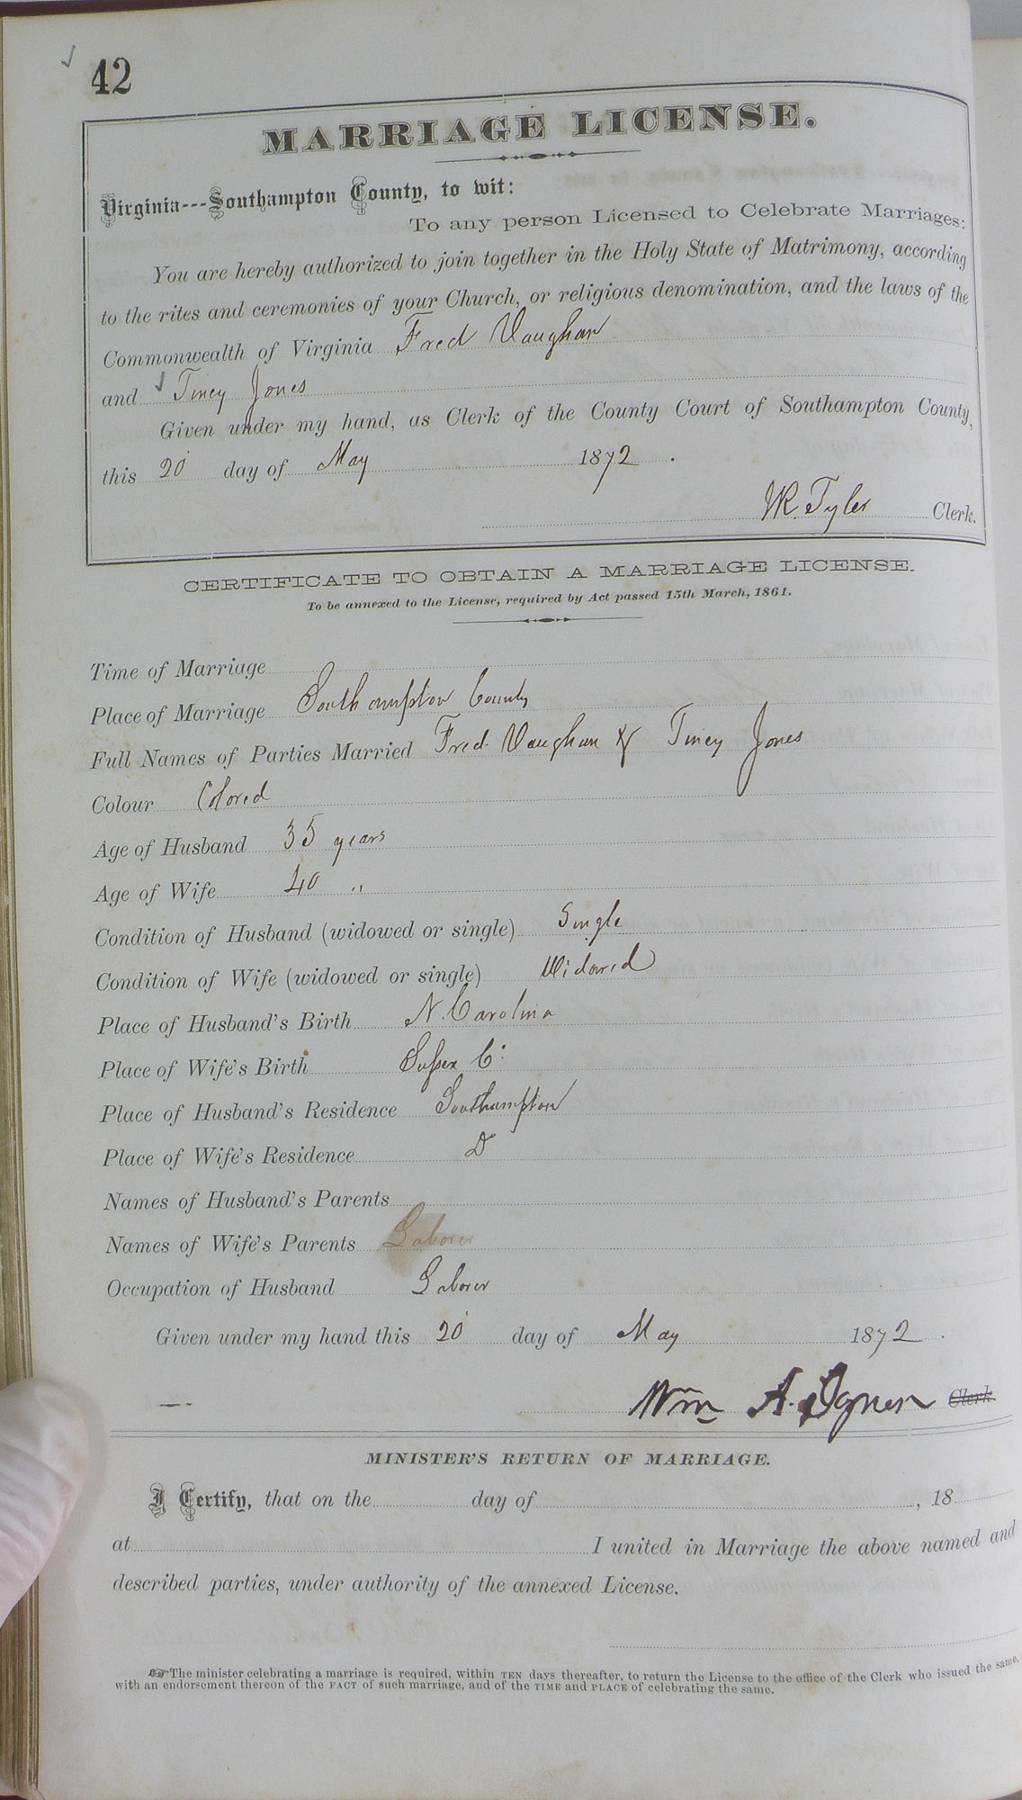 42
MARRIAGE LICENSE.
Virginia---Southampton County, to wit:
To any person Licensed to Celebrate Marriages:
You are hereby authorized to join together in the Holy State of Matrimony, according
to the rites and ceremonies of your Church, or religious denomination, and the laws of the
Commonwealth of Virginia Fred Vaughan
and Tiney Jones
Given under my hand, as Clerk of the County Court of Southampton County,
this 20 day of May 1872.
Tyler Clerk.
CERTIFICATE TO OBTAIN A MARRIAGE LICENSE.
To be annexed to the License, required by Act passed 15th March, 1861.
Time of Marriage
Place of Marriage Southampton County
Full Names of Parties Married Fred Vaughan & Tiney Jones
Colour Colored
Age of Husband 35 years
Age of Wife 40 "
Condition of Husband (widowed or single) Single
Condition of Wife (widowed or single) Widowed
Place of Husband's Birth N. Carolina
Place of Wife's Birth Sussex Co
Place of Husband's Residence Southampton
Place of Wife's Residence Do
Names of Husband's Parents
Names of Wife's Parents Laborer
Occupation of Husband Laborer
Given under my hand this 20 day of May 1872.
Wm A. Clerk.
MINISTER'S RETURN OF MARRIAGE.
I Certify, that on the day of , 18
at I united in Marriage the above named and
described parties, under authority of the annexed License.
☞The minister celebrating a marriage is required, within TEN days thereafter, to return the License to the office of the Clerk who issued the same,
with an endorsement thereon of the FACT of such marriage, and of the TIME and PLACE of celebrating the same.